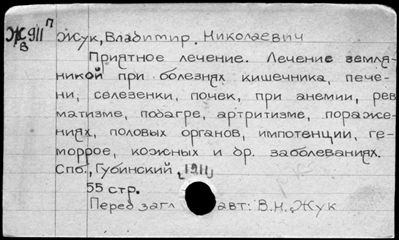 Ж 911 п
В
Жук, Владимир Николаевич
Приятное лечение. Лечение земля-
никой при болезнях кишечника, пече-
ни, селезенки, почек, при анемии, рев
матизме, подагре, артритизме, пораже-
ниях, половых органов, импотенции, ге-
моррое, кожных и др. заболеваниях.
Спб., Губинский, [1911]
55 стр.
Перед загл авт: В.Н. Жук